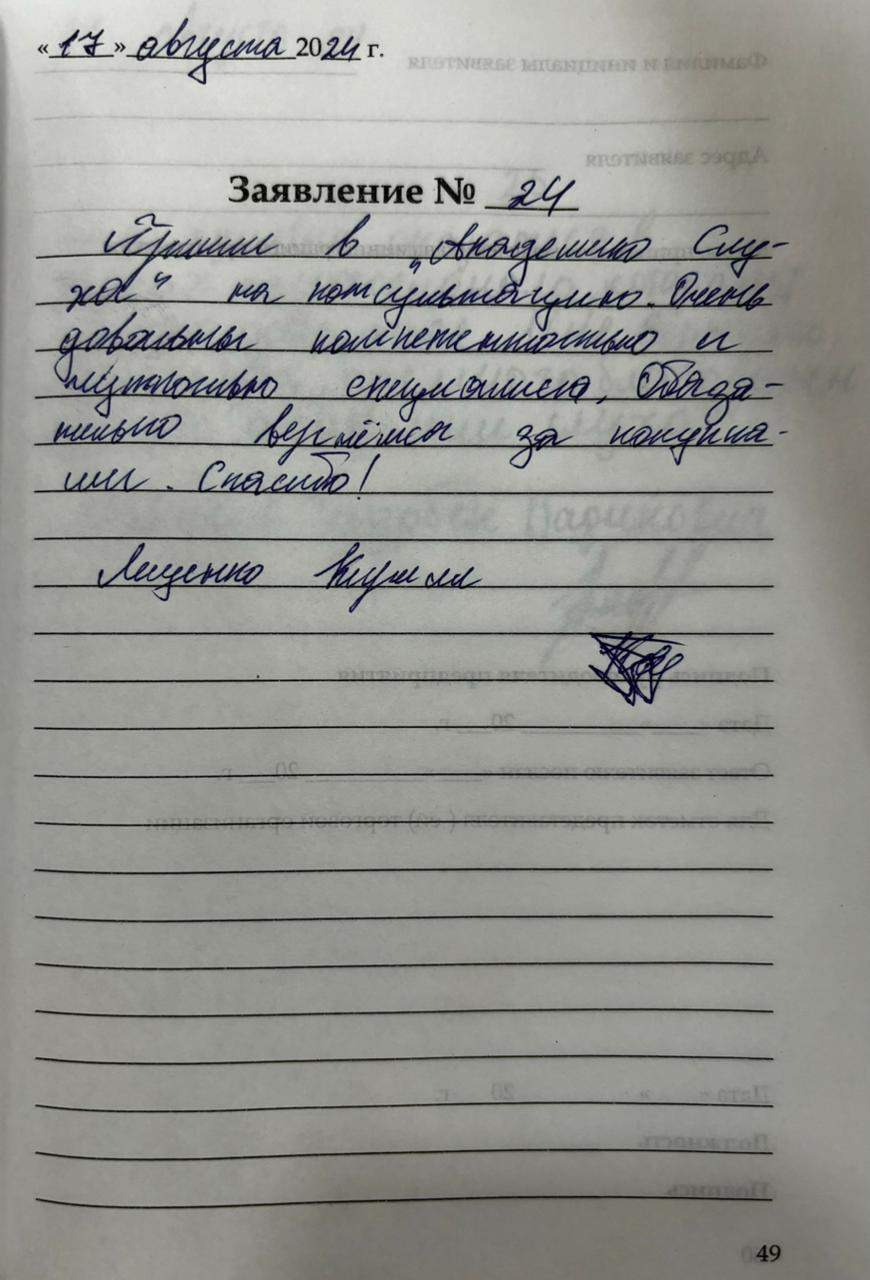 «17» августа 2024 г.
Заявление № 24
Пришли в „Академию Слу-
ха" на консультацию. Очень
довольны компетентностью и
чуткостью специалиста, Обяза-
тельно вернёмся за покупка-
ми. Спасибо!
Лященко Кирилл
49